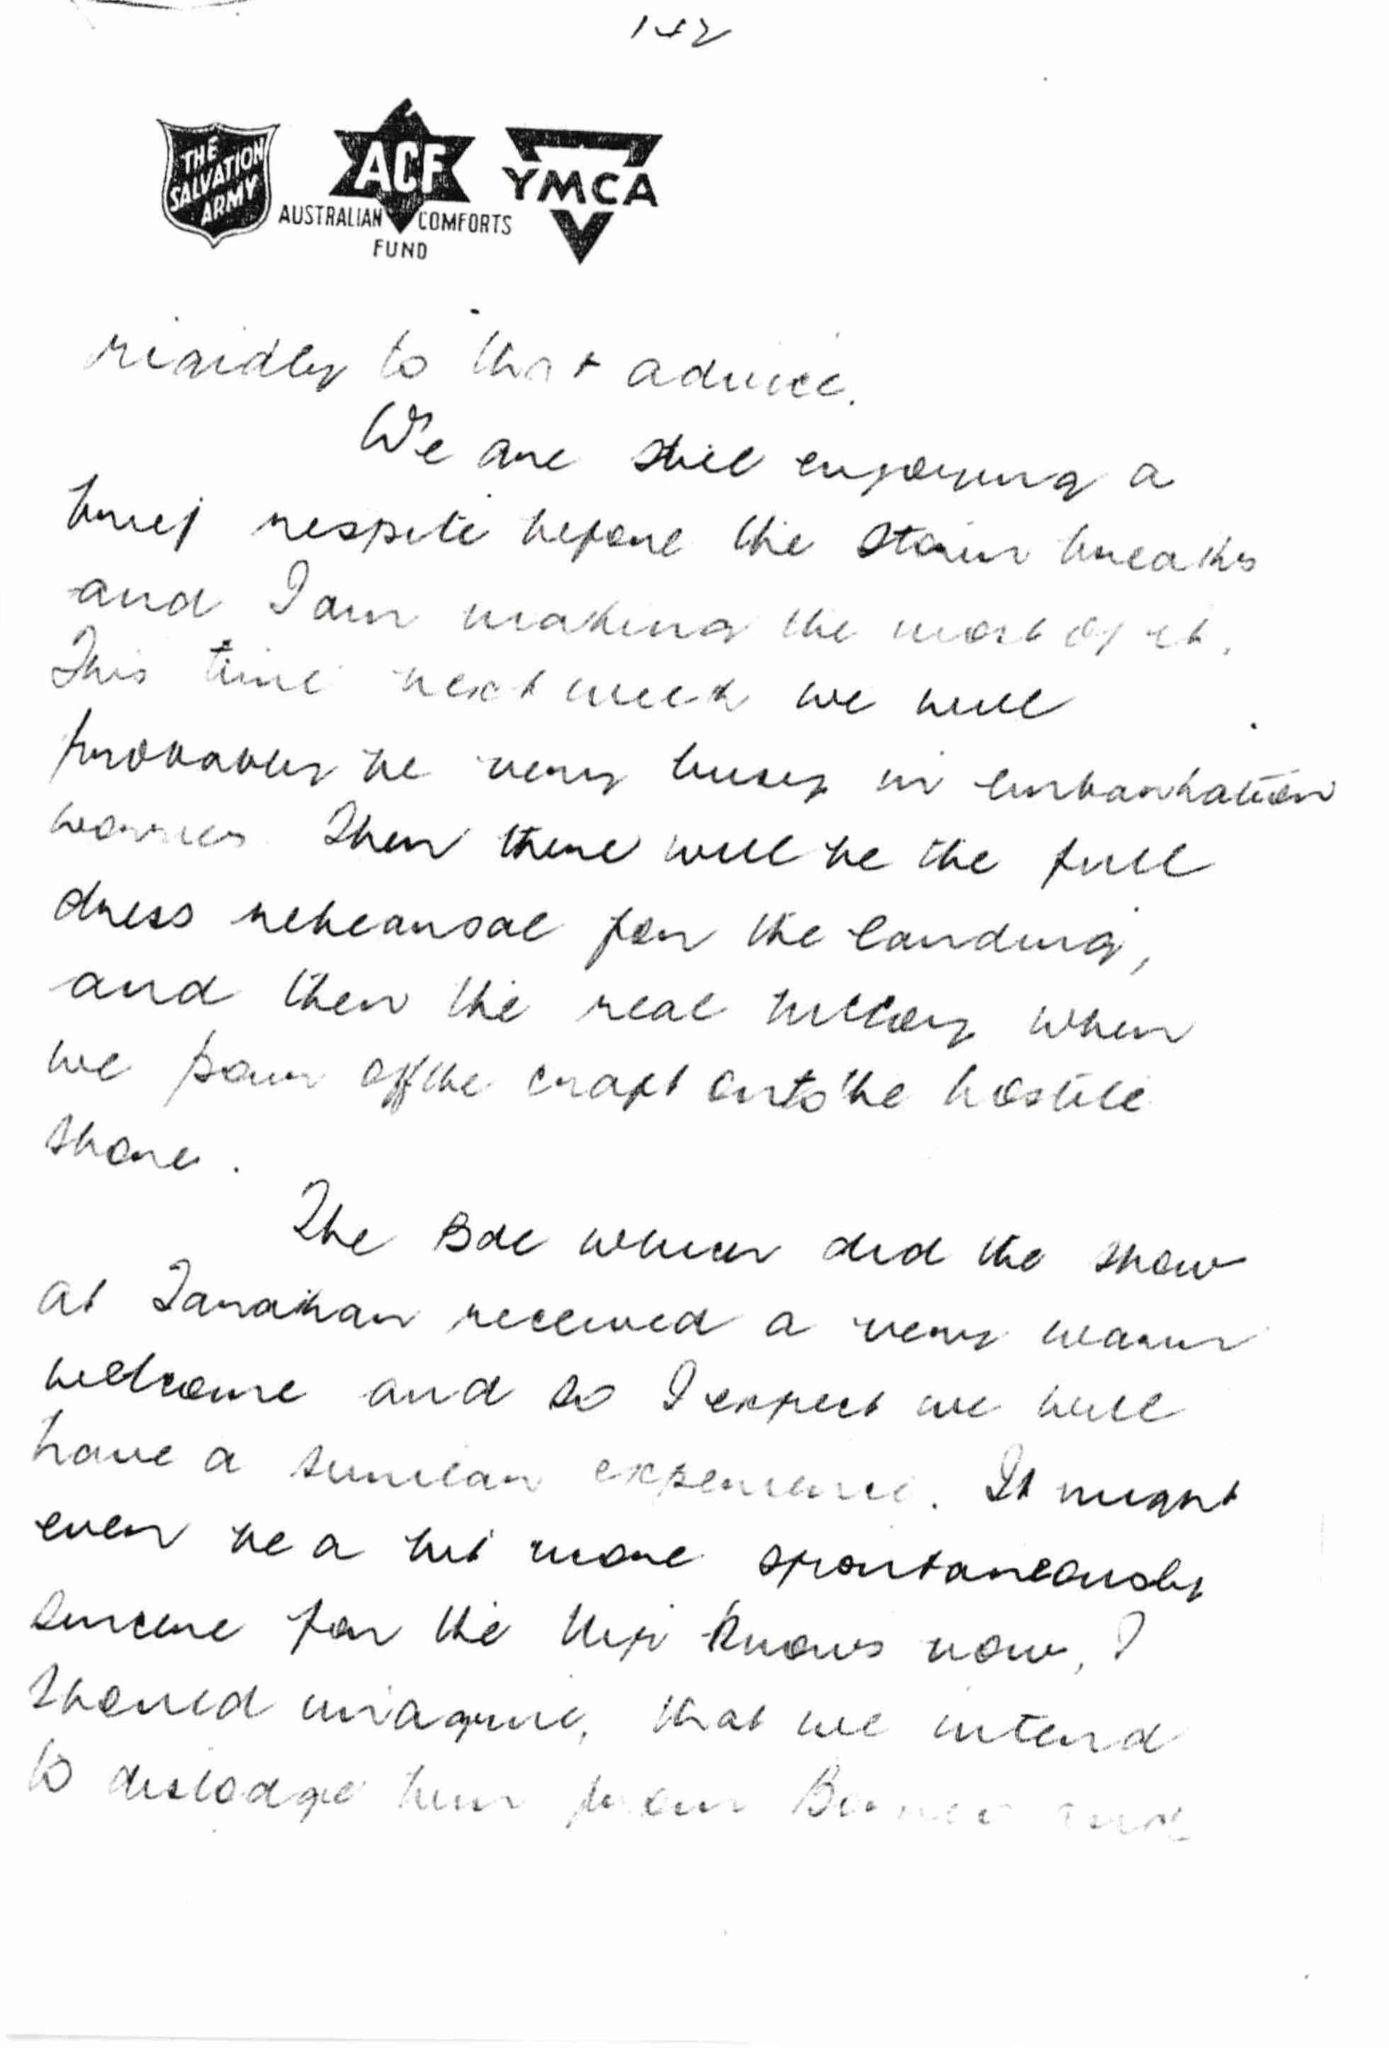 THE
SALVATION
ARMY
ACF
AUSTRALIAN COMFORTS
FUND
YMCA
rigidly to that advice.
We are still enjoying a
brief respite before the storm breaks
and I am making the most of it.
This time next week we will
probably be very busy in embarkation
worries. Then there will be the full
dress rehearsal for the landing,
and then the real McCoy when
we pour off the craft onto the hostile
shore.
The Bde which did the show
at Tarakan received a very warm
welcome and so I expect we will
have a similar experience. It might
even be a bit more spontaneously
sincere for the Nip knows now, I
should imagine, that we intend
to dislodge him from Borneo and